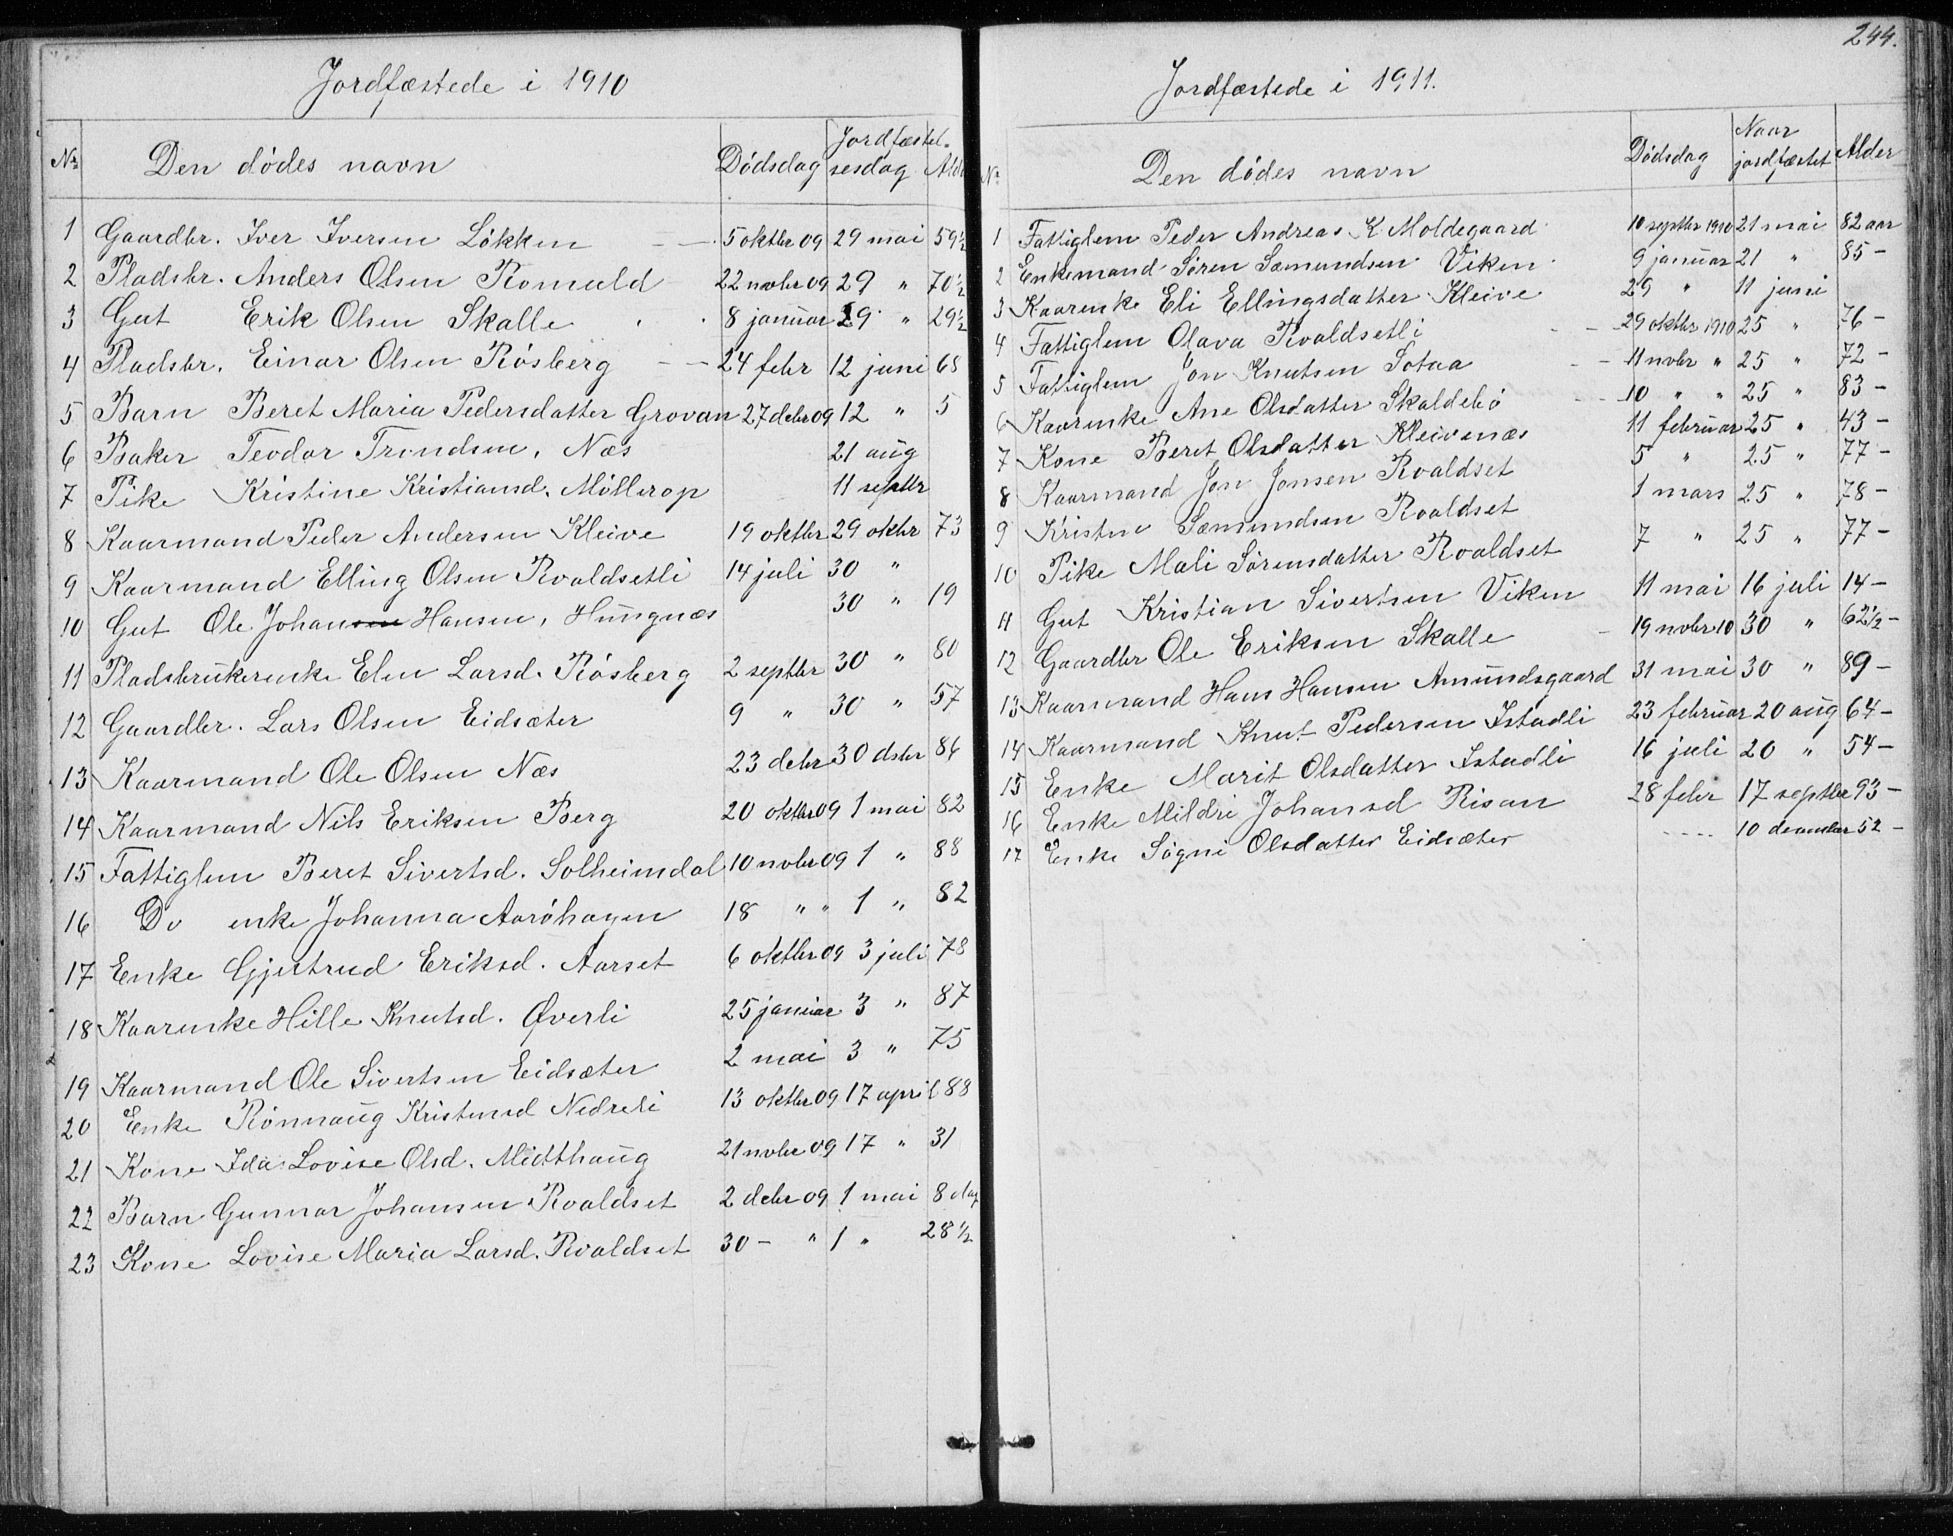 Jordfæstede i 1910
Nr. Den dödes navn Dödsdag Jordfæstelsesdag Alder
1 Gaardbr. Iver Iversen Lökken 5 oktbr 09 29 mai 59½
2 Pladsbr. Anders Olsen Romuld 22 novbr 09 29 " 70½
3 Gut Erik Olsen Skalle 8 januar 29 " 29½
4 Pladsbr. Einar Olsen Rösberg 24 febr 12 juni 68
5 Barn Beret Maria Pedersdatter Grovan 27 debr 09 12 " 5
6 Baker Teodor Trondsen, Næs 21 aug
7 Pike Kristine Kristiansd. Möllerop 11 septbr
8 Kaarmand Peder Andersen Kleive 19 oktbr 29 oktbr 73
9 Kaarmand Elling Olsen Roaldsetli 14 juli 30 "
10 Gut Ole Johansen Hansen, Hungnæs 30 " 19
11 Pladsbrukerenke Elen Larsd. Rösberg 2 septbr 30 " 80
12 Gaardbr. Lars Olsen Eidsæter 9 " 30 " 57
13 Kaarmand Ole Olsen Næs 23 debr 30 dsbr 86
14 Kaarmand Nils Eriksen Berg 20 oktbr 09 1 mai 82
15 Fattiglem Beret Sivertsd. Solheimdal 10 novbr 09 1 " 88
16 Do enke Johanna Aaröhagen 18 " " 1 " 82
17 Enke Gjertrud Eriksd. Aarset 6 oktbr 09 3 juli 78
18 Kaarenke Hille Knutsd. Øverli 25 januar 3 " 87
19 Kaarmand Ole Sivertsen Eidsæter 2 mai 3 " 75
20 Enke Rönnaug Kristensd Nedreli 13 oktbr 09 17 april 88
21 Kone Ida Lovise Olsd. Midthaug 21 novbr 09 17 " 31
22 Barn Gunnar Johansen Roaldset 2 debr 09 1 mai 8 dag
23 Kone Lovise Maria Larsd. Roaldset 30 - " 1 " 28½
244.
Jordfæstede i 1911.
Nr. Den dödes navn Dödsdag Naar jordfæstet Alder
1 Fattiglem Peder Andreas K. Moldegaard 10 septbr 1910 21 mai 82 aar
2 Enkemand Sören Sæmundsen Viken 9 januar 21 " 85 -
3 Kaarenke Eli Ellingsdatter Kleive 29 " 11 juni
4 Fattiglem Olava Roaldsetli 29 oktbr 1910 25 " 76 -
5 Fattiglem Jon Knutsen Sotaa 11 novbr " 25 " 72 -
6 Kaarenke Ane Olsdatter Skaldebö 10 " " 25 " 83 -
7 Kone Beret Olsdatter Kleivenæs 11 februar 25 " 43 -
8 Kaarmand Jon Jonsen Roaldset 5 " 25 " 77 -
9 Kristen Sæmundsen Roaldset 1 mars 25 " 78 -
10 Pike Mali Sörensdatter Roaldset 7 " 25 " 77 -
11 Gut Kristian Sivertsen Viken 11 mai 16 juli 14 -
12 Gaardbr Ole Eriksen Skalle 19 novbr 10 30 " 62½ -
13 Kaarmand Hans Hansen Amundsgaard 31 mai 30 " 89 -
14 Kaarmand Knut Pedersen Istadli 23 februar 20 aug 64 -
15 Enke Marit Olsdatter Istadli 16 juli 20 " 54 -
16 Enke Mildri Johansd Risan 28 febr 17 septbr 93 -
17 Enke Sögni Olsdatter Eidsæter .... 10 december 52 -